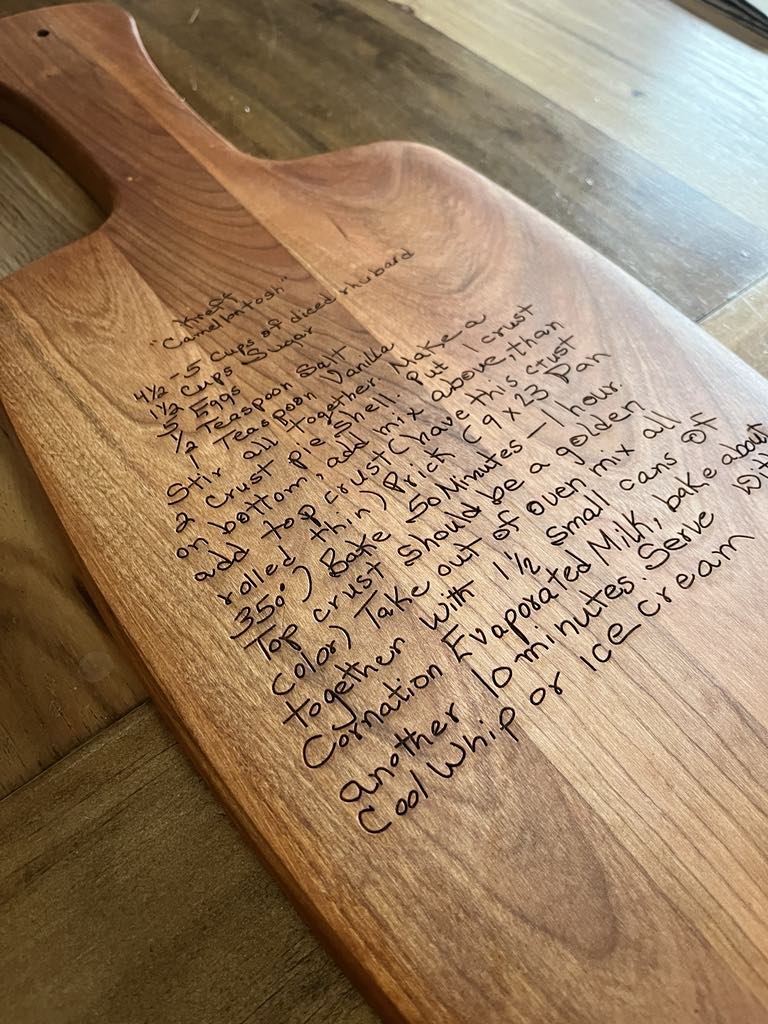 Kreft
"Camel Intosh"
4½ - 5 cups of diced rhubard
1½ cups Sugar
5 Eggs
½ Teaspoon Salt
1 Teaspoon Vanilla
Stir all together. Make a
2 crust pie shell. Put 1 crust
on bottom, add mix above, than
add top crust (have this crust
rolled thin) Prick (9 x 23 Pan
350°) Bake 50 Minutes - 1 hour.
Top crust should be a golden
color) Take out of oven mix all
together with 1½ small cans of
Cornation Evaporated Milk, bake about
another 10 minutes. Serve with
Cool Whip or ice cream